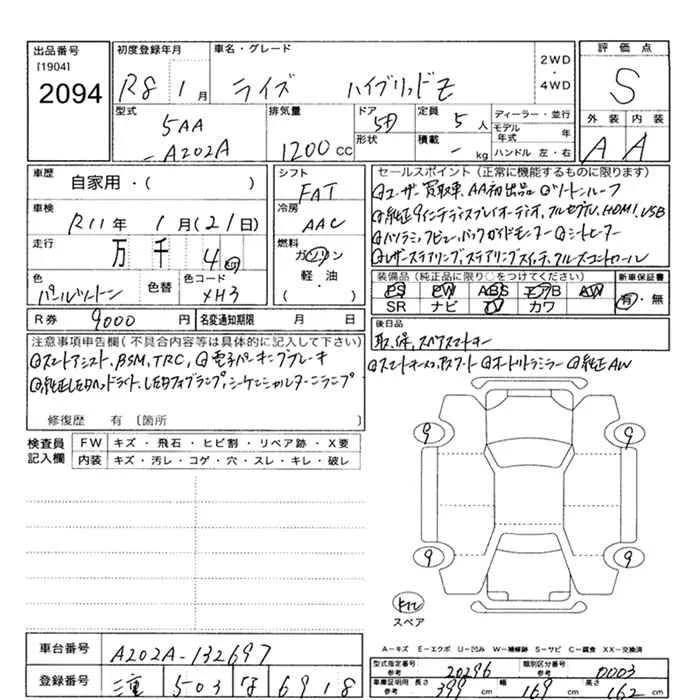 出品番号 [1904] 2094
初度登録年月 R8 1月
車名・グレード ライズ ハイブリッドZ
2WD・4WD
評価点 S
外装 A 内装 A
型式 5AA-A202A
排気量 1200cc
ドア 5D 形状
定員 5人
積載 - kg
ディーラー・並行
モデル年式 年
ハンドル 左・右
車歴 自家用・( )
車検 R11年 1月(21日)
走行 万 千 4 km
色 パールツートン
色替
色コード XH3
シフト FAT
冷房 AAC
燃料 ガソリン 軽・油 ( )
セールスポイント(正常に機能するものに限ります)
ユーザー買取車、AA初出品 ツートンルーフ
純正9インチディスプレイオーディオ、フルセグTV、HDMI、USB
パノラミックビュー、バックガイドモニター シートヒーター
レザーステアリング、ステアリングスイッチ、クルーズコントロール
装備品(純正品に限り○をつけてください)
PS PW ABS エアB AW
SR ナビ TV カワ
新車保証書 有・無
R券 9000円
名変通知期限 月 日
後日品
取、保、スペアスマートキー
スマートキー×2、Pスタート オートリトラミラー 純正AW
注意事項申告欄(不具合内容等は具体的に記入して下さい)
スマートアシスト、BSM、TRC、電子パーキングブレーキ
純正LEDヘッドライト、LEDフォグランプ、シーケンシャルターンランプ
修復歴 有 〔箇所 〕
検査員記入欄
FW キズ・飛石・ヒビ割・リペア跡・X要
内装 キズ・汚レ・コゲ・穴・スレ・キレ・破レ
9 9
9 9
スペア
A=キズ E=エクボ U=凹み W=補修跡 S=サビ C=腐食 XX=交換済
車台番号 A202A-132697
登録番号 三重 503 な 6918
型式指定番号 参考 20296
類別区分番号 参考 0003
車庫証明用 参考 長さ 399cm 幅 169cm 高さ 162cm